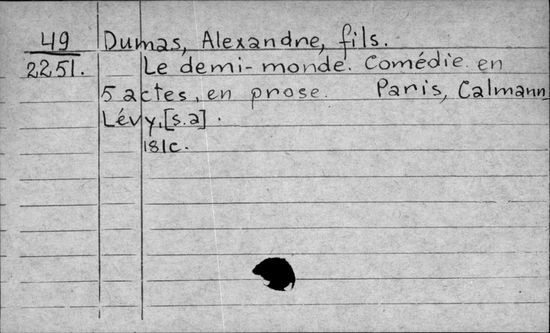 49 Dumas, Alexandre, fils.
2251. Le demi-monde. Comédie en
5 actes, en prose. Paris, Calmann
Lévy, [s.a].
181c.